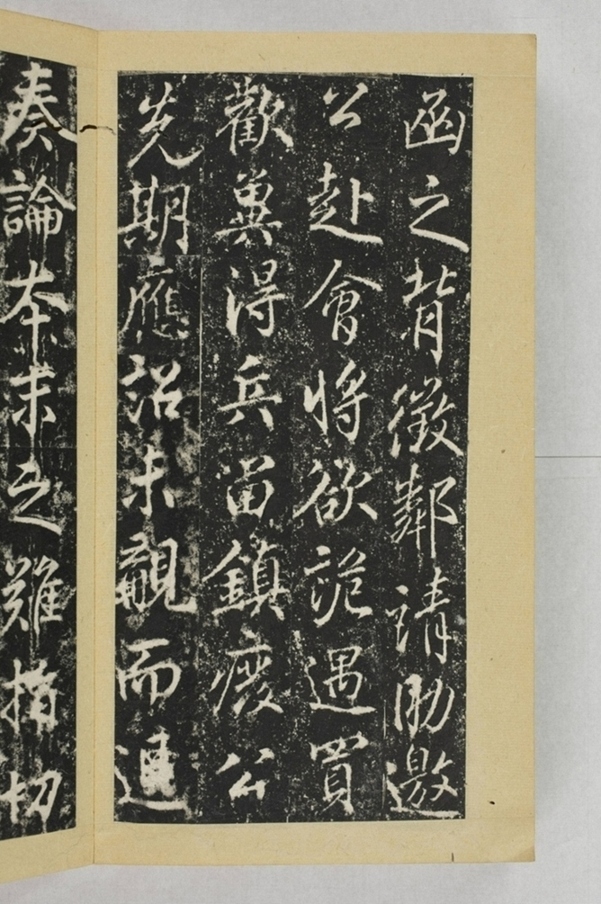 函之背徵鄰請助邀
公赴會將欲詭遇買
歡冀得兵留鎮癈公
先期應詔未覲而進
奏論本末之難指切